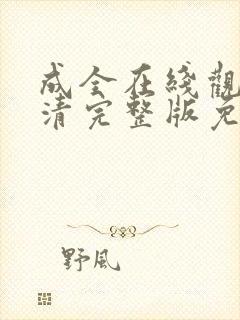 成全在綫觀
清完整版免
野風